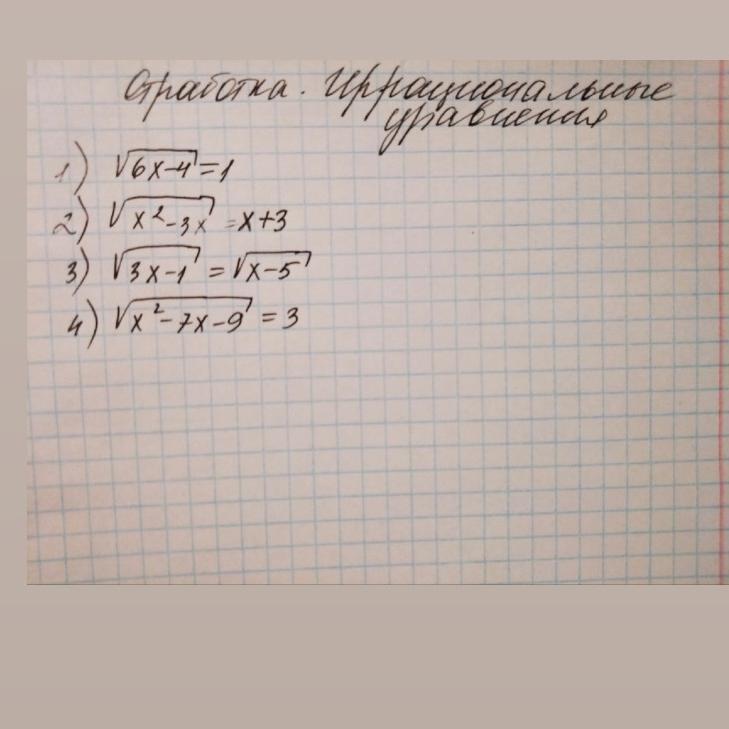 Отработка. Иррациональные
уравнения
1) √6x-4 = 1
2) √x²-3x = x+3
3) √3x-1 = √x-5
4) √x²-7x-9 = 3